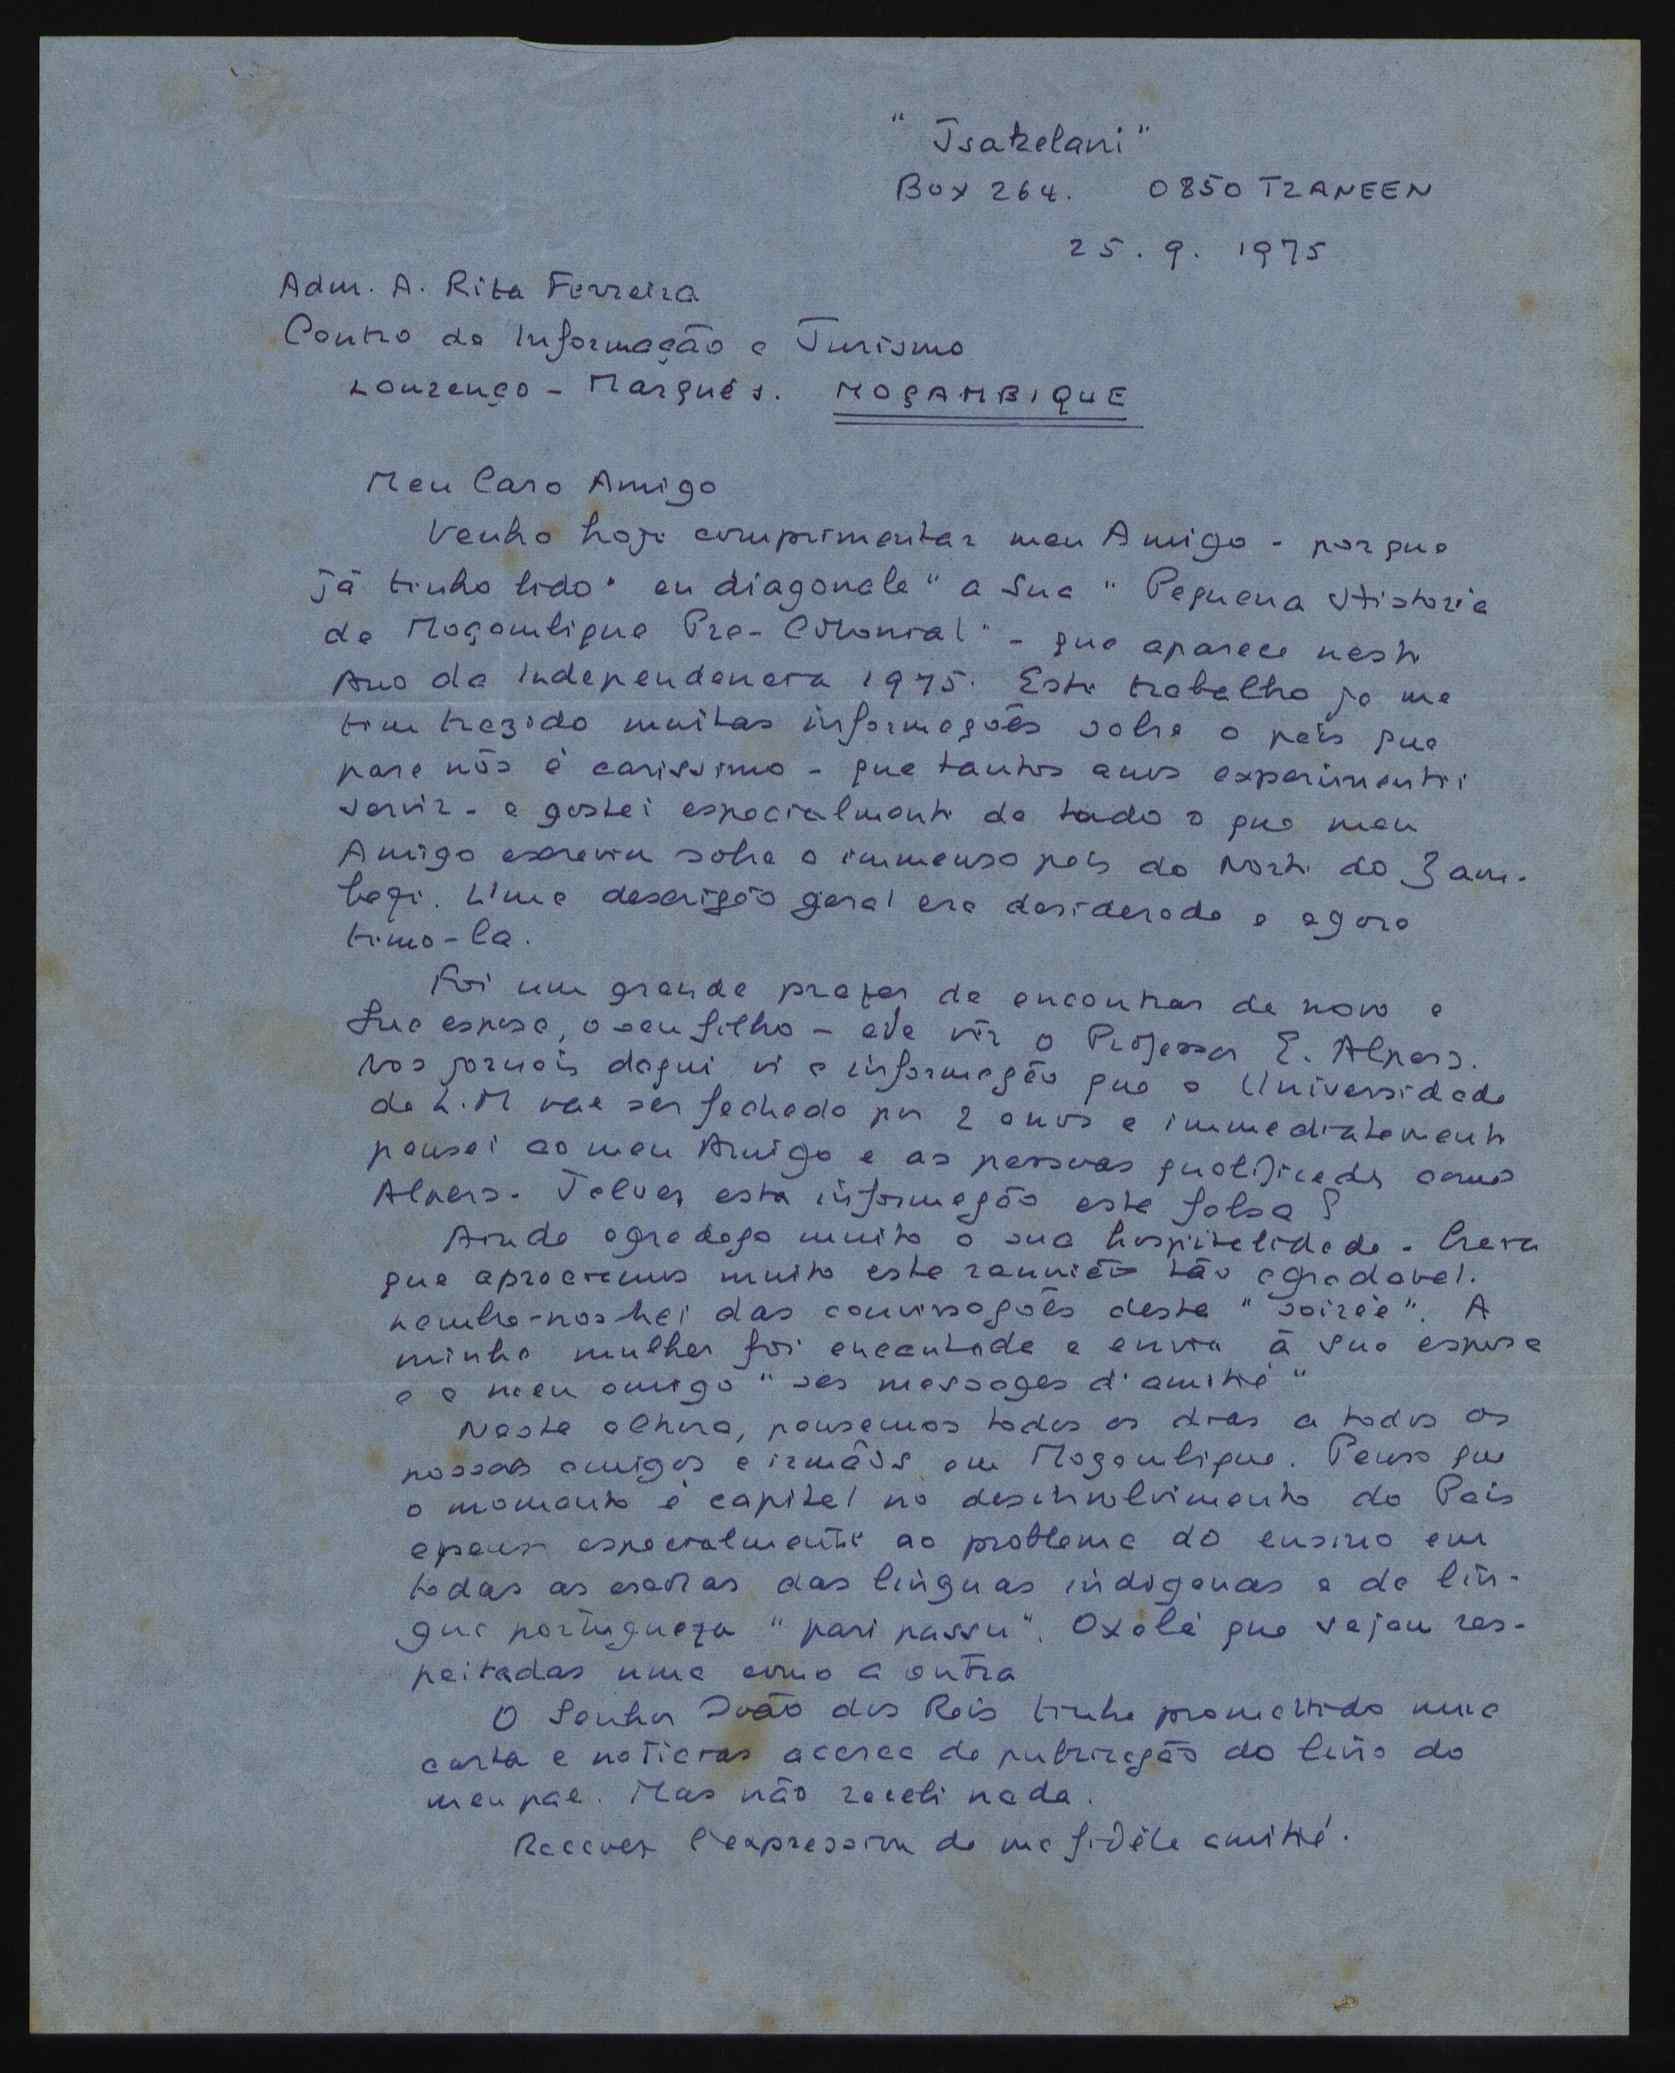 "Tsakelani"
Box 264. 0850 TZANEEN
25. 9. 1975
Adm. A. Rita Ferreira
Centro de Informação e Turismo
Lourenço - Marquès. MOÇAMBIQUE
Meu Caro Amigo
Venho hoje comprimentar meu Amigo - porque
já tinho lido "en diagonale" a Sua "Pequena Historia
de Moçambique Pre-Colonial" - que aparece neste
Ano da Independencia 1975. Este trabalho ja me
tem trazido muitas informações sobre o païs que
para nós é carissimo - que tantos anos experimentei
servir - e gostei especialmente de tudo o que meu
Amigo escreviu sobre o immenso païs do Norte do Zam-
bezi. Uma descrição geral era desiderada e agora
temo-la.
Foi um grande prazer de encontrar de novo a
Sua esposa, o seu filho - e de vir o Professor E. Alpers.
Nos jornais daqui vi a informação que a Universidade
de L.M vae ser fechada por 2 anos e immediatamente
pensei ao meu Amigo e as pessoas qualificada como
Alpers. Talvez esta informação este falsa?
Ainda agradeço muito a sua hospitalidade. Creia
que apreciamos muito esta reunião tão agradavel.
Lembra-nos-hei das conversações desta "soirée". A
minha mulher foi encantada e envia à Sua esposa
e a meu amigo "ses messages d'amitié"
Nesta altura, pensamos todos os dias a todos os
nossos amigos e irmãos em Moçambique. Penso que
o momento é capital no desenvolvimento do Pais
e penso especialmente ao problema do ensino em
todas as escolas das linguas indigenas e da lin-
gua portugueza "pari passu". Oxalá que sejam res-
peitadas uma como a outra
O Senhor João dos Reis tinha promettido uma
carta e noticias acerca da publicação do livro do
meu pae. Mas não recebi nada.
Recevez l'expression de ma fidèle amitié.